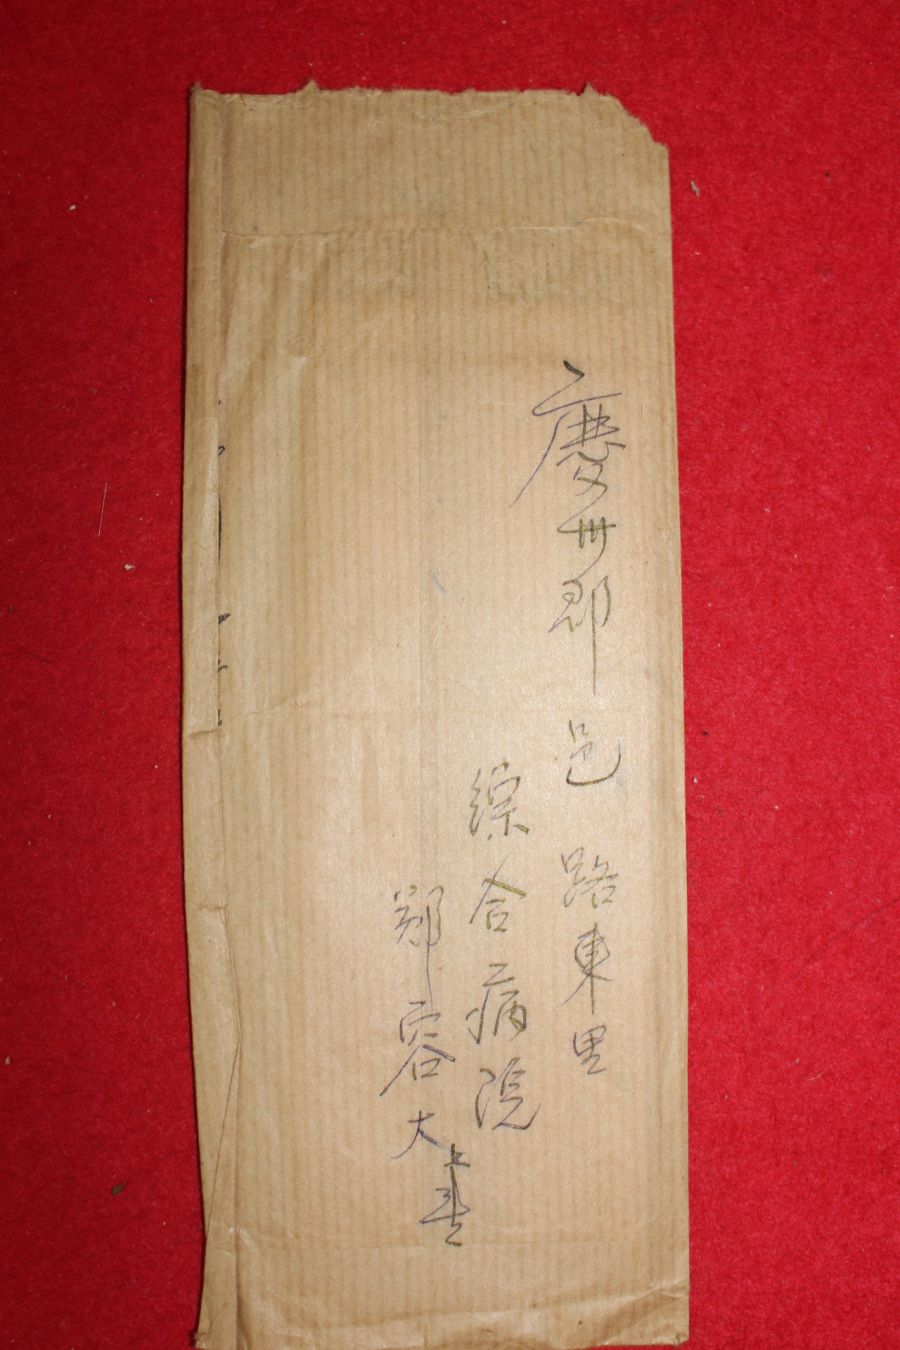 慶州郡 邑 路東里
綜合病院
鄭容大
上書